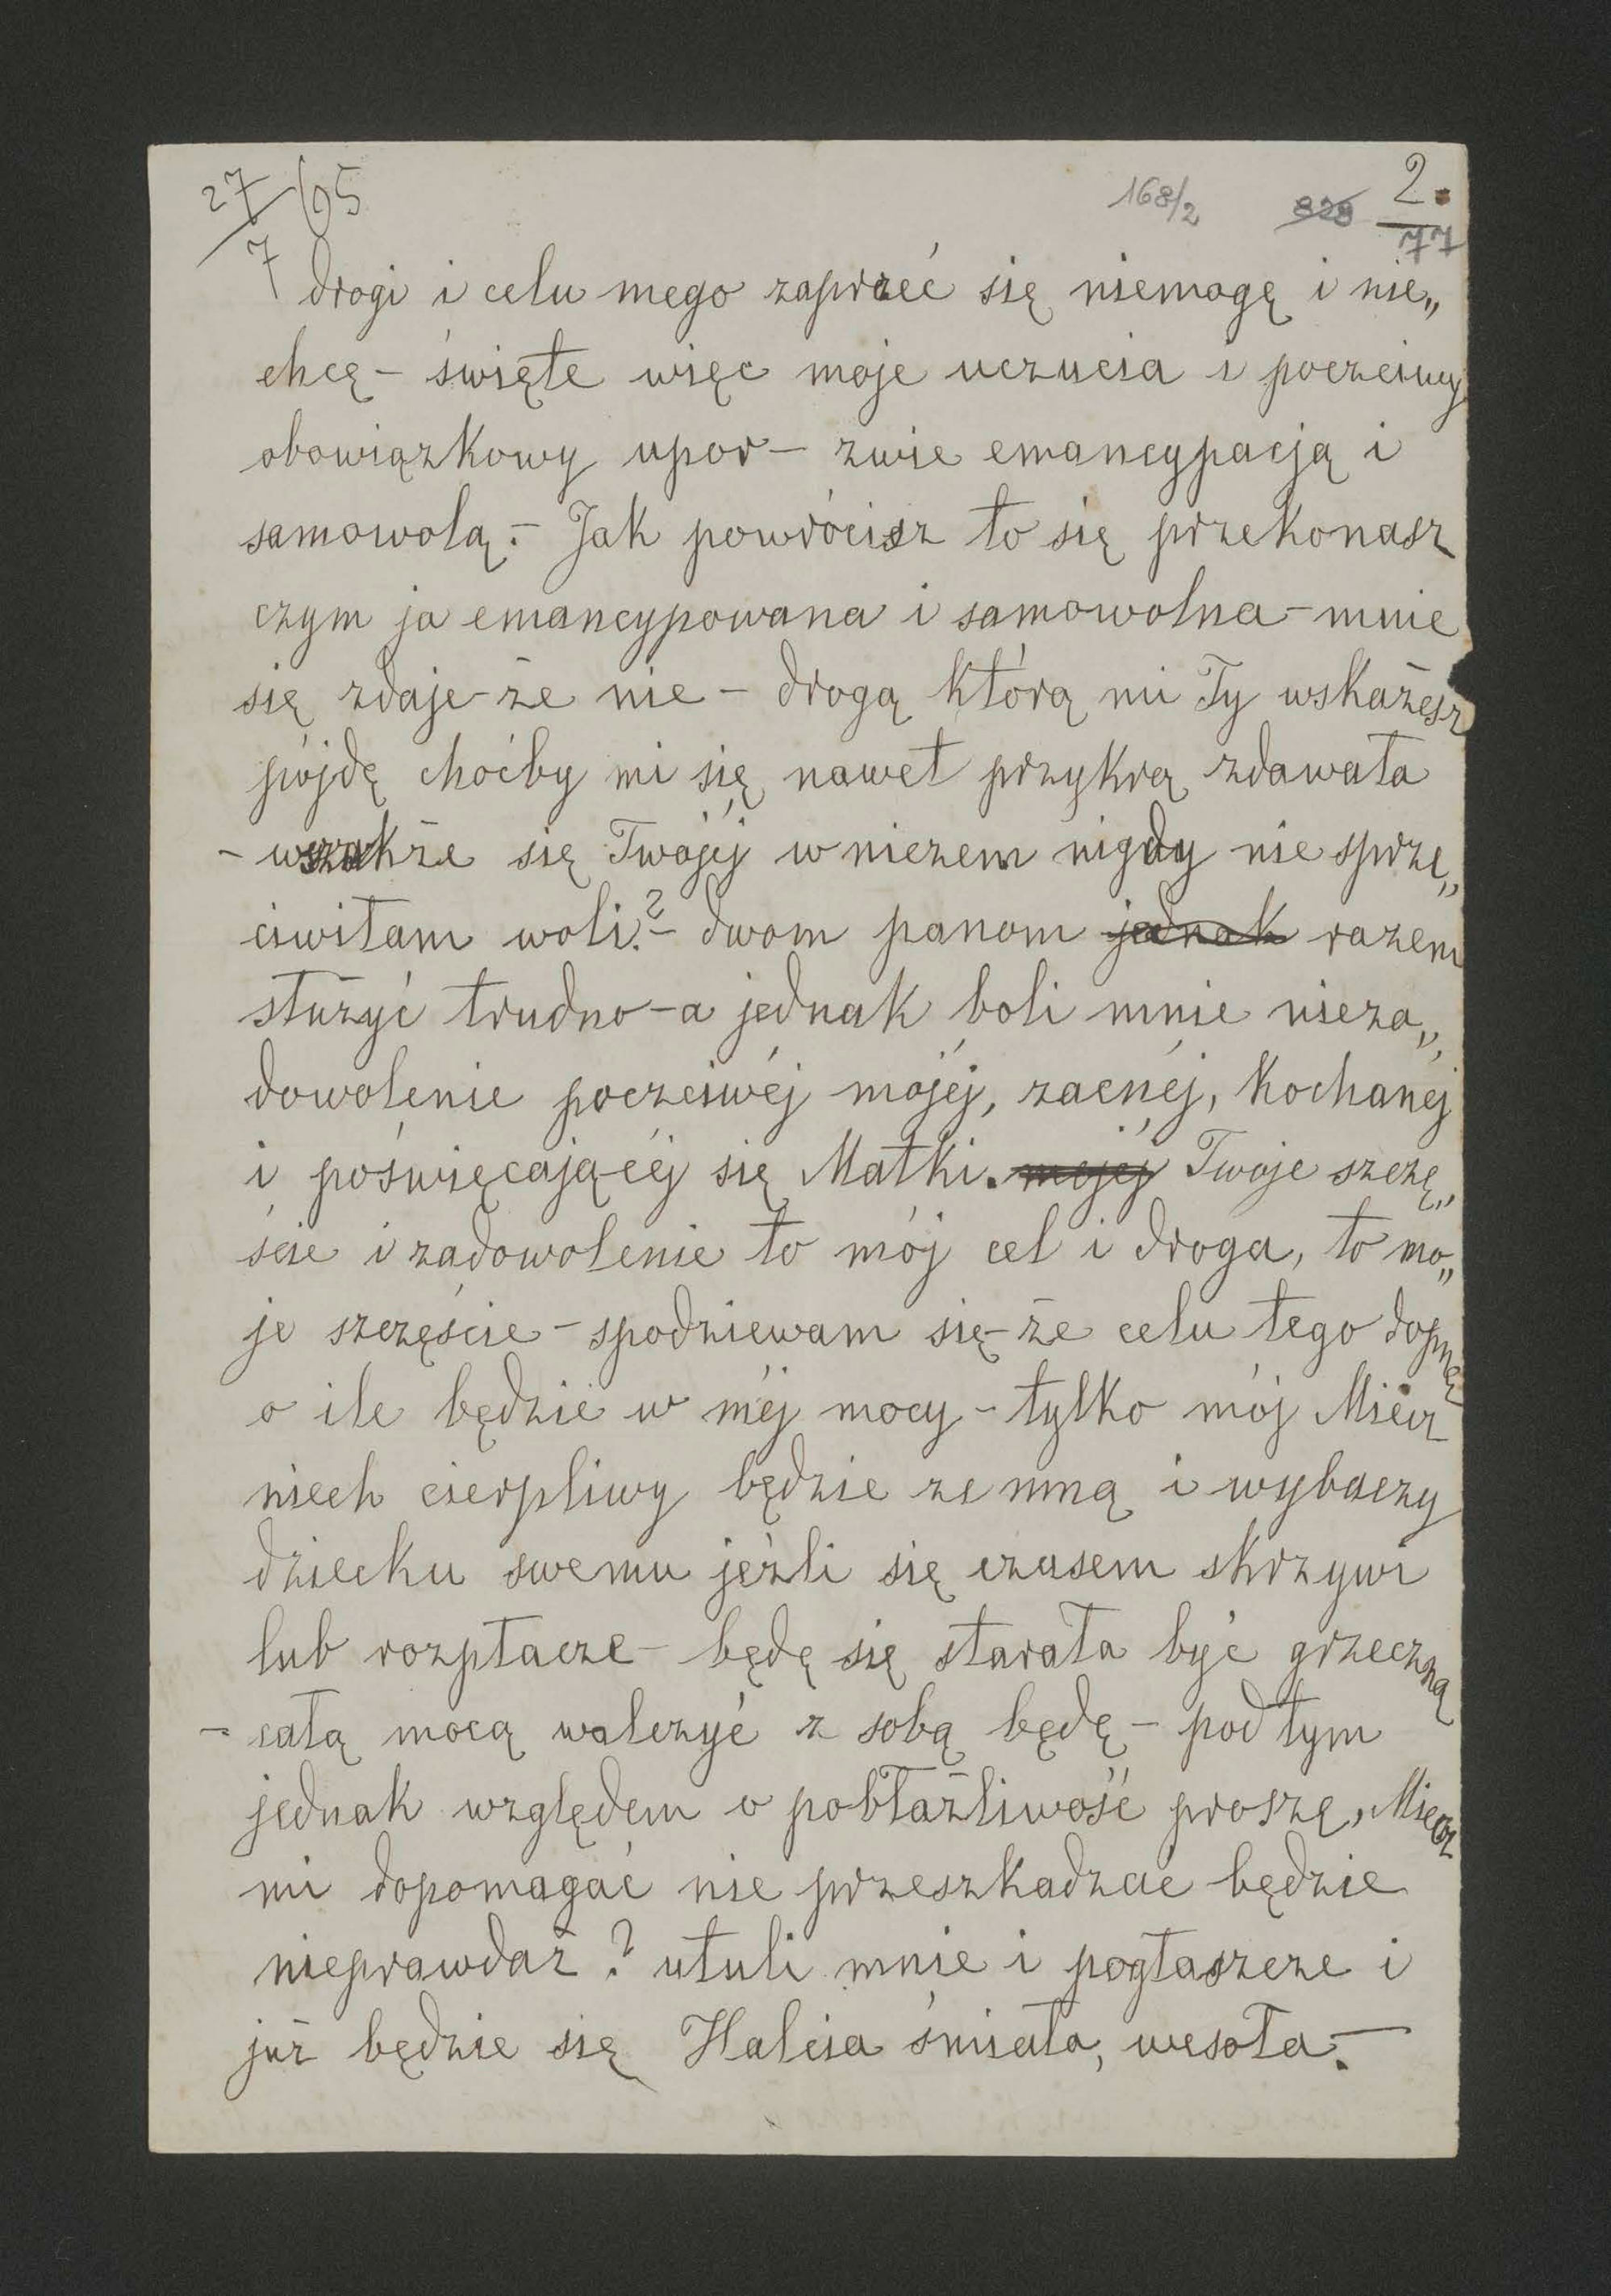 27/7 95
168/2 828 2.
77
drogi i celu mego zaprzeć się niemogę i nie„
chcę – święte więc moje uczucia i poczciwy
obowiązkowy upor – zwie emancypacją i
samowolą. – Jak powrócisz to się przekonasz
czym ja emancypowana i samowolna – mnie
się zdaje – że nie – drogą którą mi Ty wskażesz
pójdę choćby mi się nawet przykrą zdawała
– wszakże się Twojéj w niczem nigdy nie sprze„
ciwiłam woli? – dwom panom jednak razem
służyć trudno – a jednak boli mnie nieza„
dowolenie poczciwéj mojéj, zacnéj, kochanéj
i poświęcającéj się Matki. mojéj Twoje szczę„
ście i zadowolenie to mój cel i droga, to mo„
je szczęście – spodziewam się – że celu tego dopnę
o ile będzie w méj mocy – tylko mój Miecz
niech cierpliwy będzie ze mną i wybaczy
dziecku swemu jeżli się czasem skrzywi
lub rozpłacze – będę się starała być grzeczną
– całą mocą walczyć z sobą będę – pod tym
jednak względem o pobłażliwość proszę, Miecz
mi dopomagać nie przeszkadzać będzie
nieprawdaż? utuli mnie i pogłaszcze i
już będzie się Halcia śmiała, wesoła. –